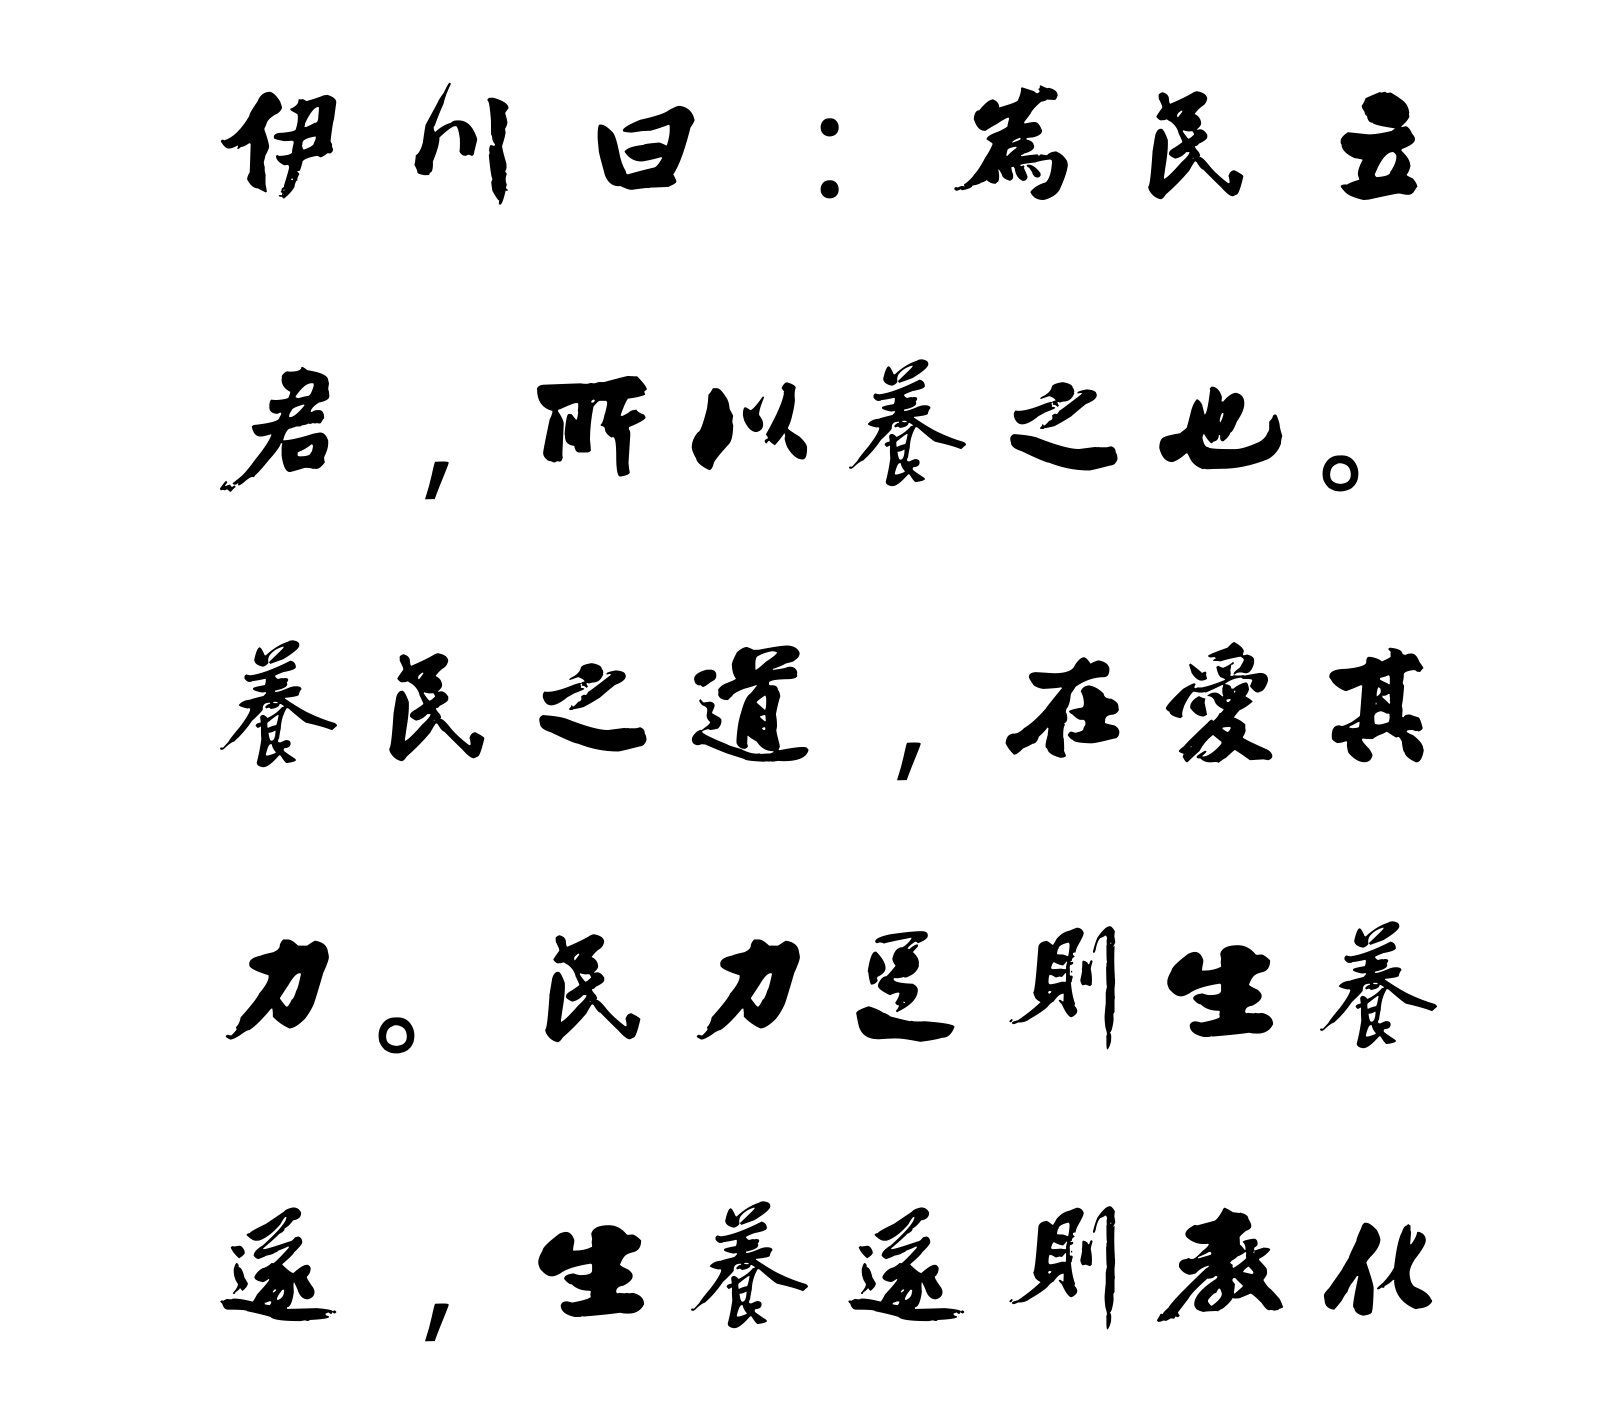 伊川曰：為民立
君，所以養之也。
養民之道，在愛其
力。民力足則生養
遂，生養遂則教化